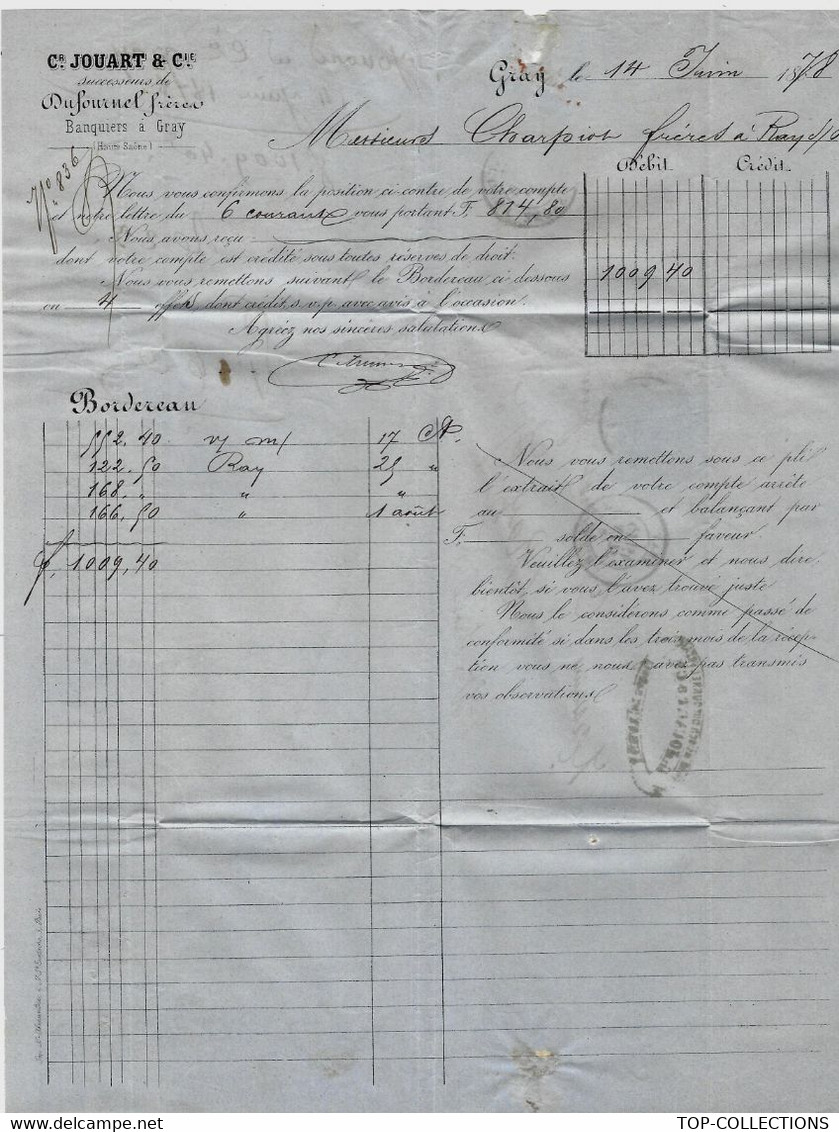 CH. JOUART & CIE
successeurs de
Dufournel frères
Banquiers à Gray
(Haute Saône)
Gray le 14 Juin 1878
Messieurs Charpiot frères à Ray s/
Débit Crédit
No 836
Nous vous confirmons la position ci-contre de votre compte
et notre lettre du 6 courant vous portant F. 814,80
Nous avons reçu
dont votre compte est crédité sous toutes réserves de droit.
1009 40
Nous vous remettons suivant le Bordereau ci dessous
en 4 effets dont crédit s.v.p. avec avis à l'occasion.
Agréez nos sincères salutations
Bordereau
552.40 v/ m/ 17 Ct.
122.50 Ray 25 "
168." " "
166.50 " 1 août
f. 1009,40
Nous vous remettons sous ce pli
l'extrait de votre compte arrêté
au et balançant par
F. solde en faveur.
Veuillez l'examiner et nous dire,
bientôt, si vous l'avez trouvé juste
Nous le considérons comme passé de
conformité si dans les trois mois de la récep-
tion vous ne nous avez pas transmis
vos observations
TOP-COLLECTIONS